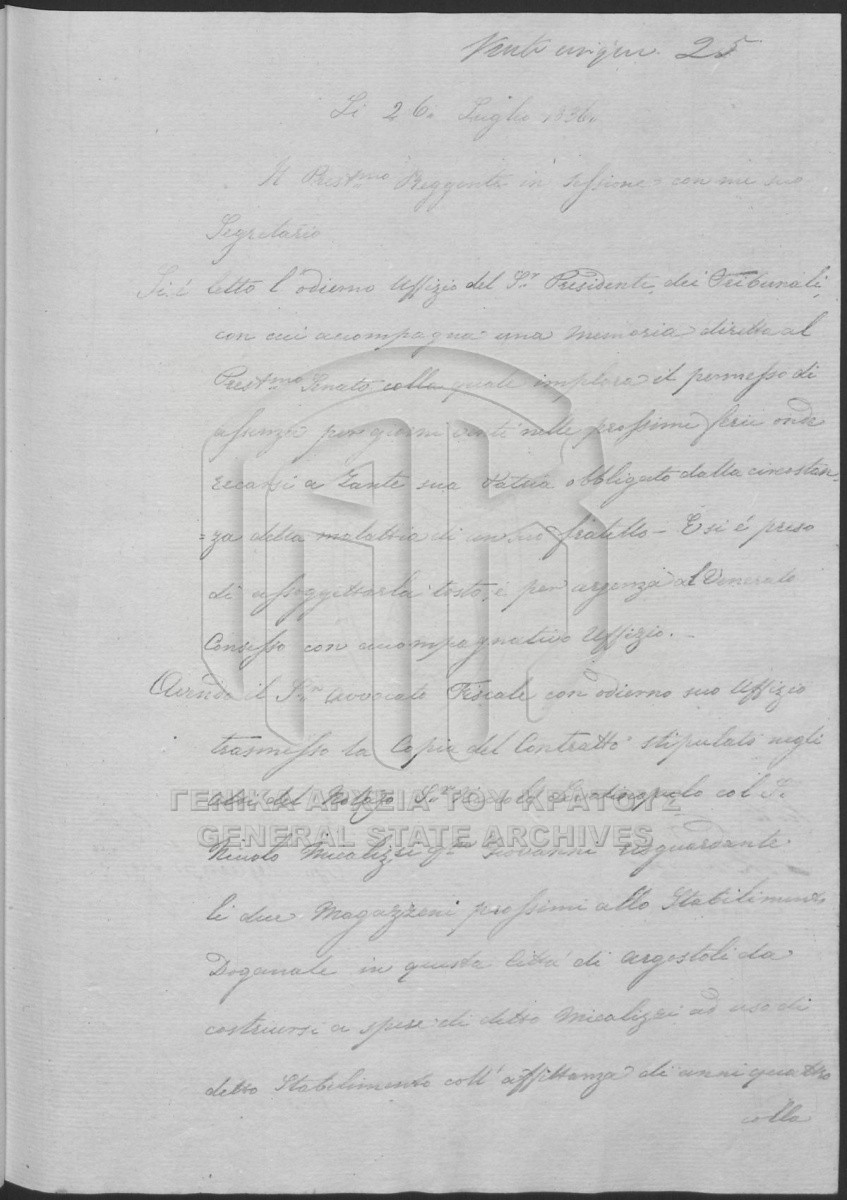 Venti cinque. 25
Li 26. Luglio 1836.
Il Prestmo Reggente in sessione con me suo
Segretario
Si é letto l'odierno Uffizio del Sr. Presidente dei Tribunali,
con cui accompagna una Memoria diretta al
Prestmo Senato colla quale implora il permesso di
assenza per giorni venti nelle prossime ferie onde
recarsi a Zante sua Patria obbligato dalla circostan=
=za della malattia di un suo fratello - E si é preso
di assoggettarla tosto, e per urgenza al Venerato
Consesso con accompagnativo Uffizio. -
Avendo il Sr. Avvocato Fiscale con odierno suo Uffizio
trasmesso la Copia del Contratto stipulato negli
atti del Notajo Sr. col Sr.
Nicolò Micalizzi qm Giovanni risguardante
li due Magazzeni prossimi allo Stabilimento
Doganale in questa Cittá di Argostoli da
costruirsi a spese di detto Micalizzi ad uso di
detto Stabilimento coll'affittanza di anni quattro
colla
ΓΕΝΙΚΑ ΑΡΧΕΙΑ ΤΟΥ ΚΡΑΤΟΥΣ
GENERAL STATE ARCHIVES